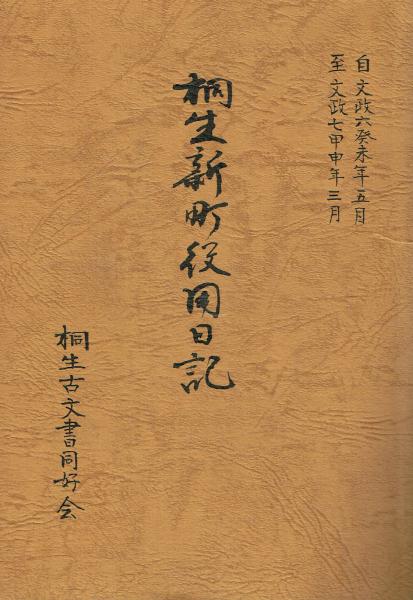 自 文政六癸未年五月
至 文政七甲申年三月
桐生新町役用日記
桐生古文書同好会